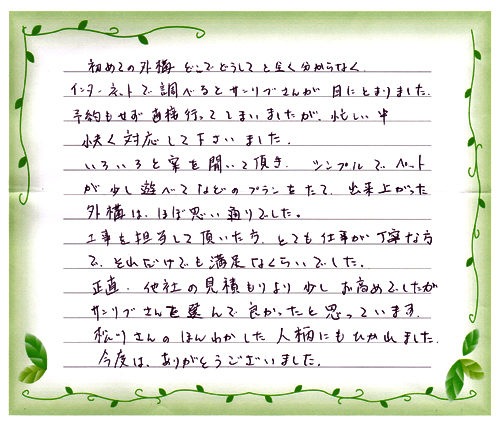 初めての外構 どこでどうしてと全く分からなく、
インターネットで調べるとサンリブさんが目にとまりました。
予約もせず直接行ってしまいましたが、忙しい中
快く対応して下さいました。
いろいろと案を聞いて頂き、シンプルでペット
が少し遊べてなどのプランをたて、出来上がった
外構は、ほぼ思い通りでした。
工事を担当して頂いた方、とても仕事が丁寧な方
で、それだけでも満足なくらいでした。
正直、他社の見積もりより少しお高めでしたが
サンリブさんを選んで良かったと思っています。
松川さんのほんわかした人柄にもひかれました。
今度は、ありがとうございました。